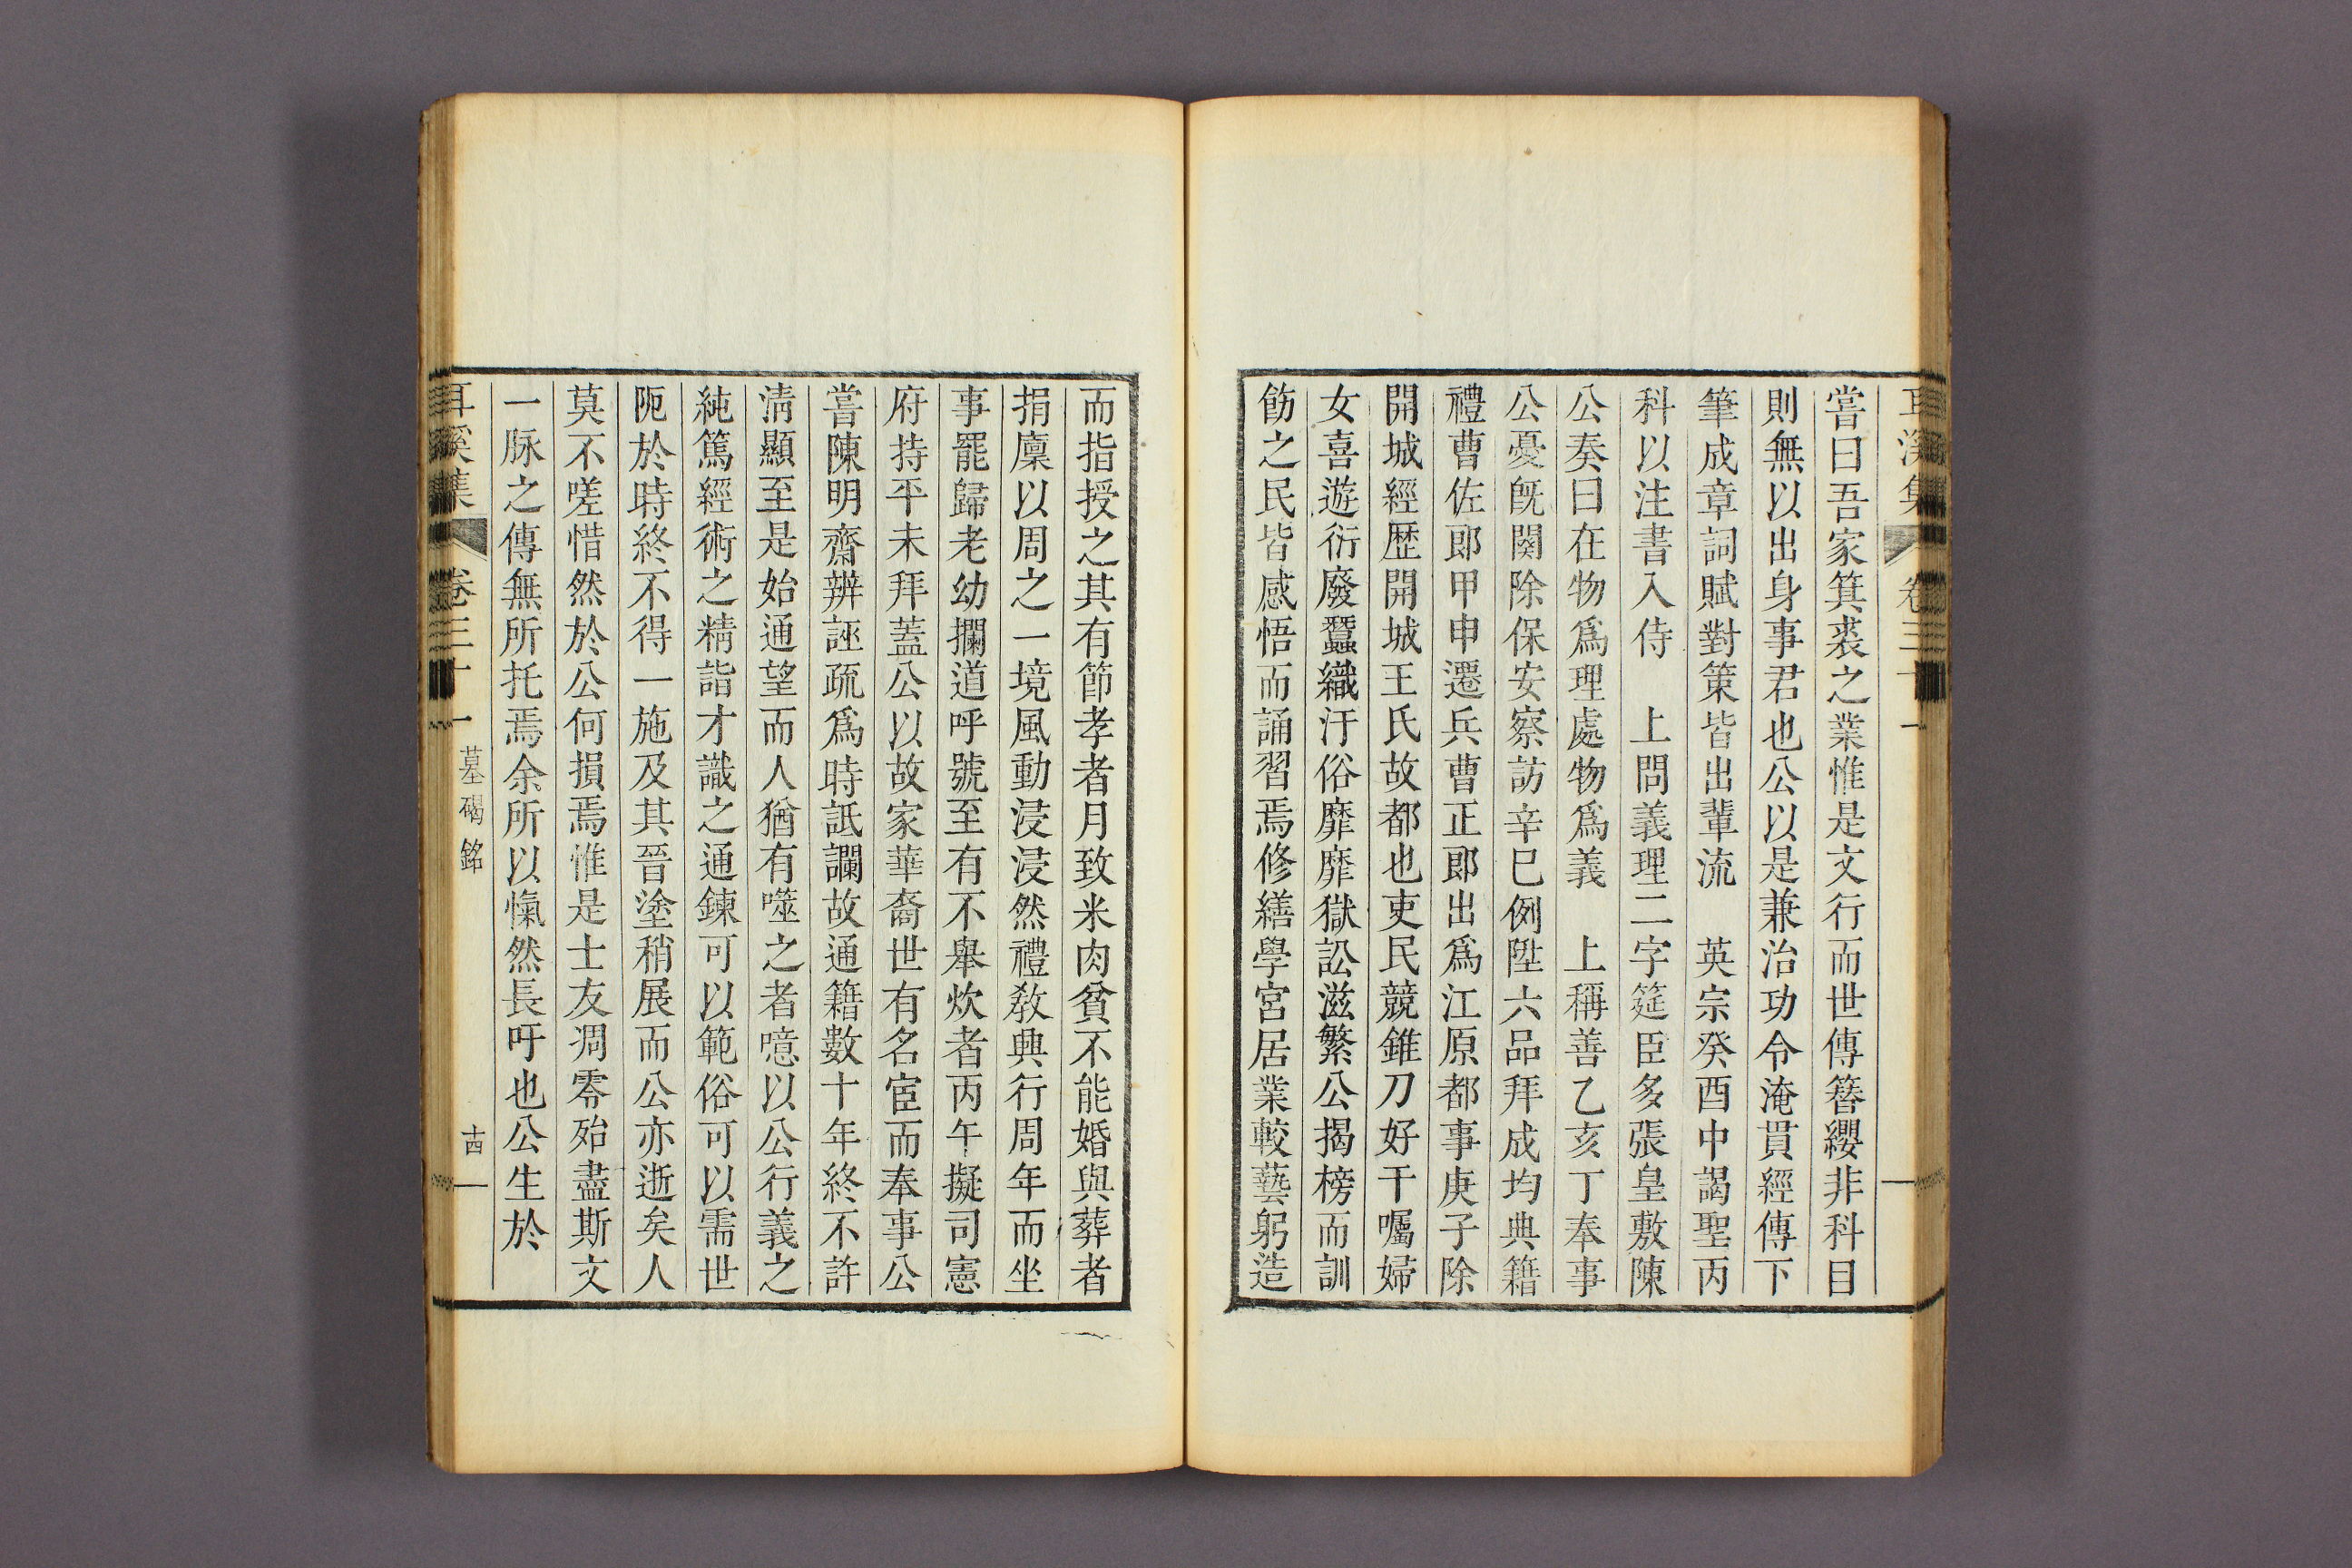 耳溪集 卷三十一
嘗曰吾家箕裘之業惟是文行而世傳簪纓非科目
則無以出身事君也公以是兼治功令淹貫經傳下
筆成章詞賦對策皆出輩流 英宗癸酉中謁聖丙
科以注書入侍 上問義理二字筵臣多張皇敷陳
公奏曰在物爲理處物爲義 上稱善乙亥丁奉事
公憂旣闋除保安察訪辛巳例陞六品拜成均典籍
禮曹佐郎甲申遷兵曹正郎出爲江原都事庚子除
開城經歷開城王氏故都也吏民競錐刀好干囑婦
女喜遊衍廢蠶織汙俗靡靡獄訟滋繁公揭榜而訓
飭之民皆感悟而誦習焉修繕學宮居業較藝躬造
而指授之其有節孝者月致米肉貧不能婚與葬者
捐廩以周之一境風動浸浸然禮敎興行周年而坐
事罷歸老幼攔道呼號至有不舉炊者丙午擬司憲
府持平未拜蓋公以故家華裔世有名宦而奉事公
嘗陳明齋辨誣疏爲時詆讕故通籍數十年終不許
淸顯至是始通望而人猶有噬之者噫以公行義之
純篤經術之精詣才識之通鍊可以範俗可以需世
阨於時終不得一施及其晉塗稍展而公亦逝矣人
莫不嗟惜然於公何損焉惟是士友凋零殆盡斯文
一脉之傳無所托焉余所以愾然長吁也公生於
耳溪集 卷三十一 墓碣銘 十四